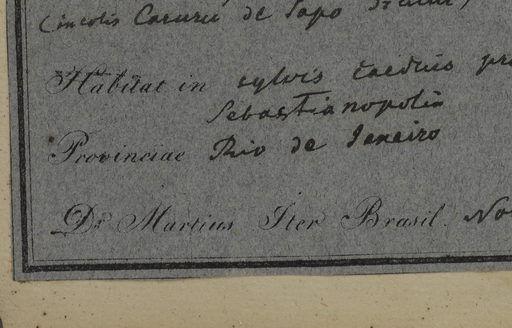 (incolis Caruru de Sapo
Habitat in sylvis caeduis
Sebastianopolin
Provinciae Rio de Janeiro
Dr. Martius Iter Brasil.